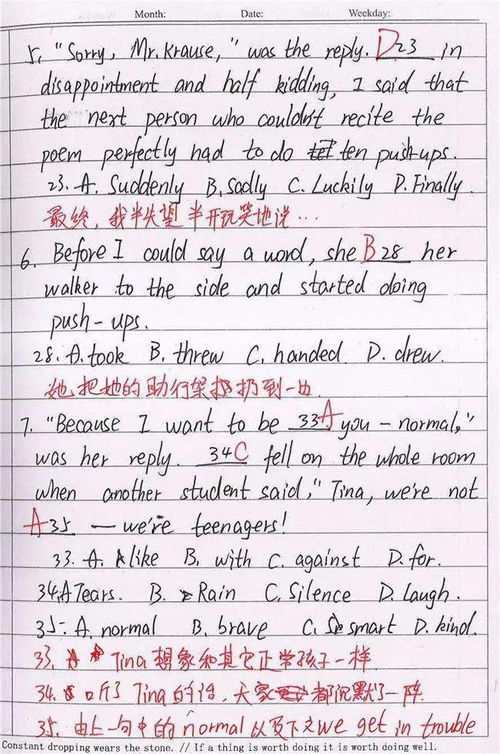 Month: Date: Weekday:
5. "Sorry, Mr. Krause," was the reply. D23 in
disappointment and half kidding, I said that
the next person who couldn't recite the
poem perfectly had to do ten push-ups.
23. A. Suddenly B. Sadly C. Luckily D. Finally
最终,我半失望 半开玩笑地说...
6. Before I could say a word, she B28 her
walker to the side and started doing
push-ups.
28. A. took B. threw C. handed D. drew.
她把她的助行架扔到一边
7. "Because I want to be 33A you - normal,"
was her reply. 34C fell on the whole room
when another student said, "Tina, we're not
A35 — we're teenagers!
33. A. like B. with C. against D. for.
34. A Tears. B. Rain C. Silence D. Laugh.
35. A. normal B. brave C. smart D. kind.
33. Tina 想象和其它正常孩子一样
34. 听了 Tina 的话,大家都沉默了一阵
35. 由上一句中的 normal 以及下文 we get in trouble
Constant dropping wears the stone. // If a thing is worth doing it is worth doing well.